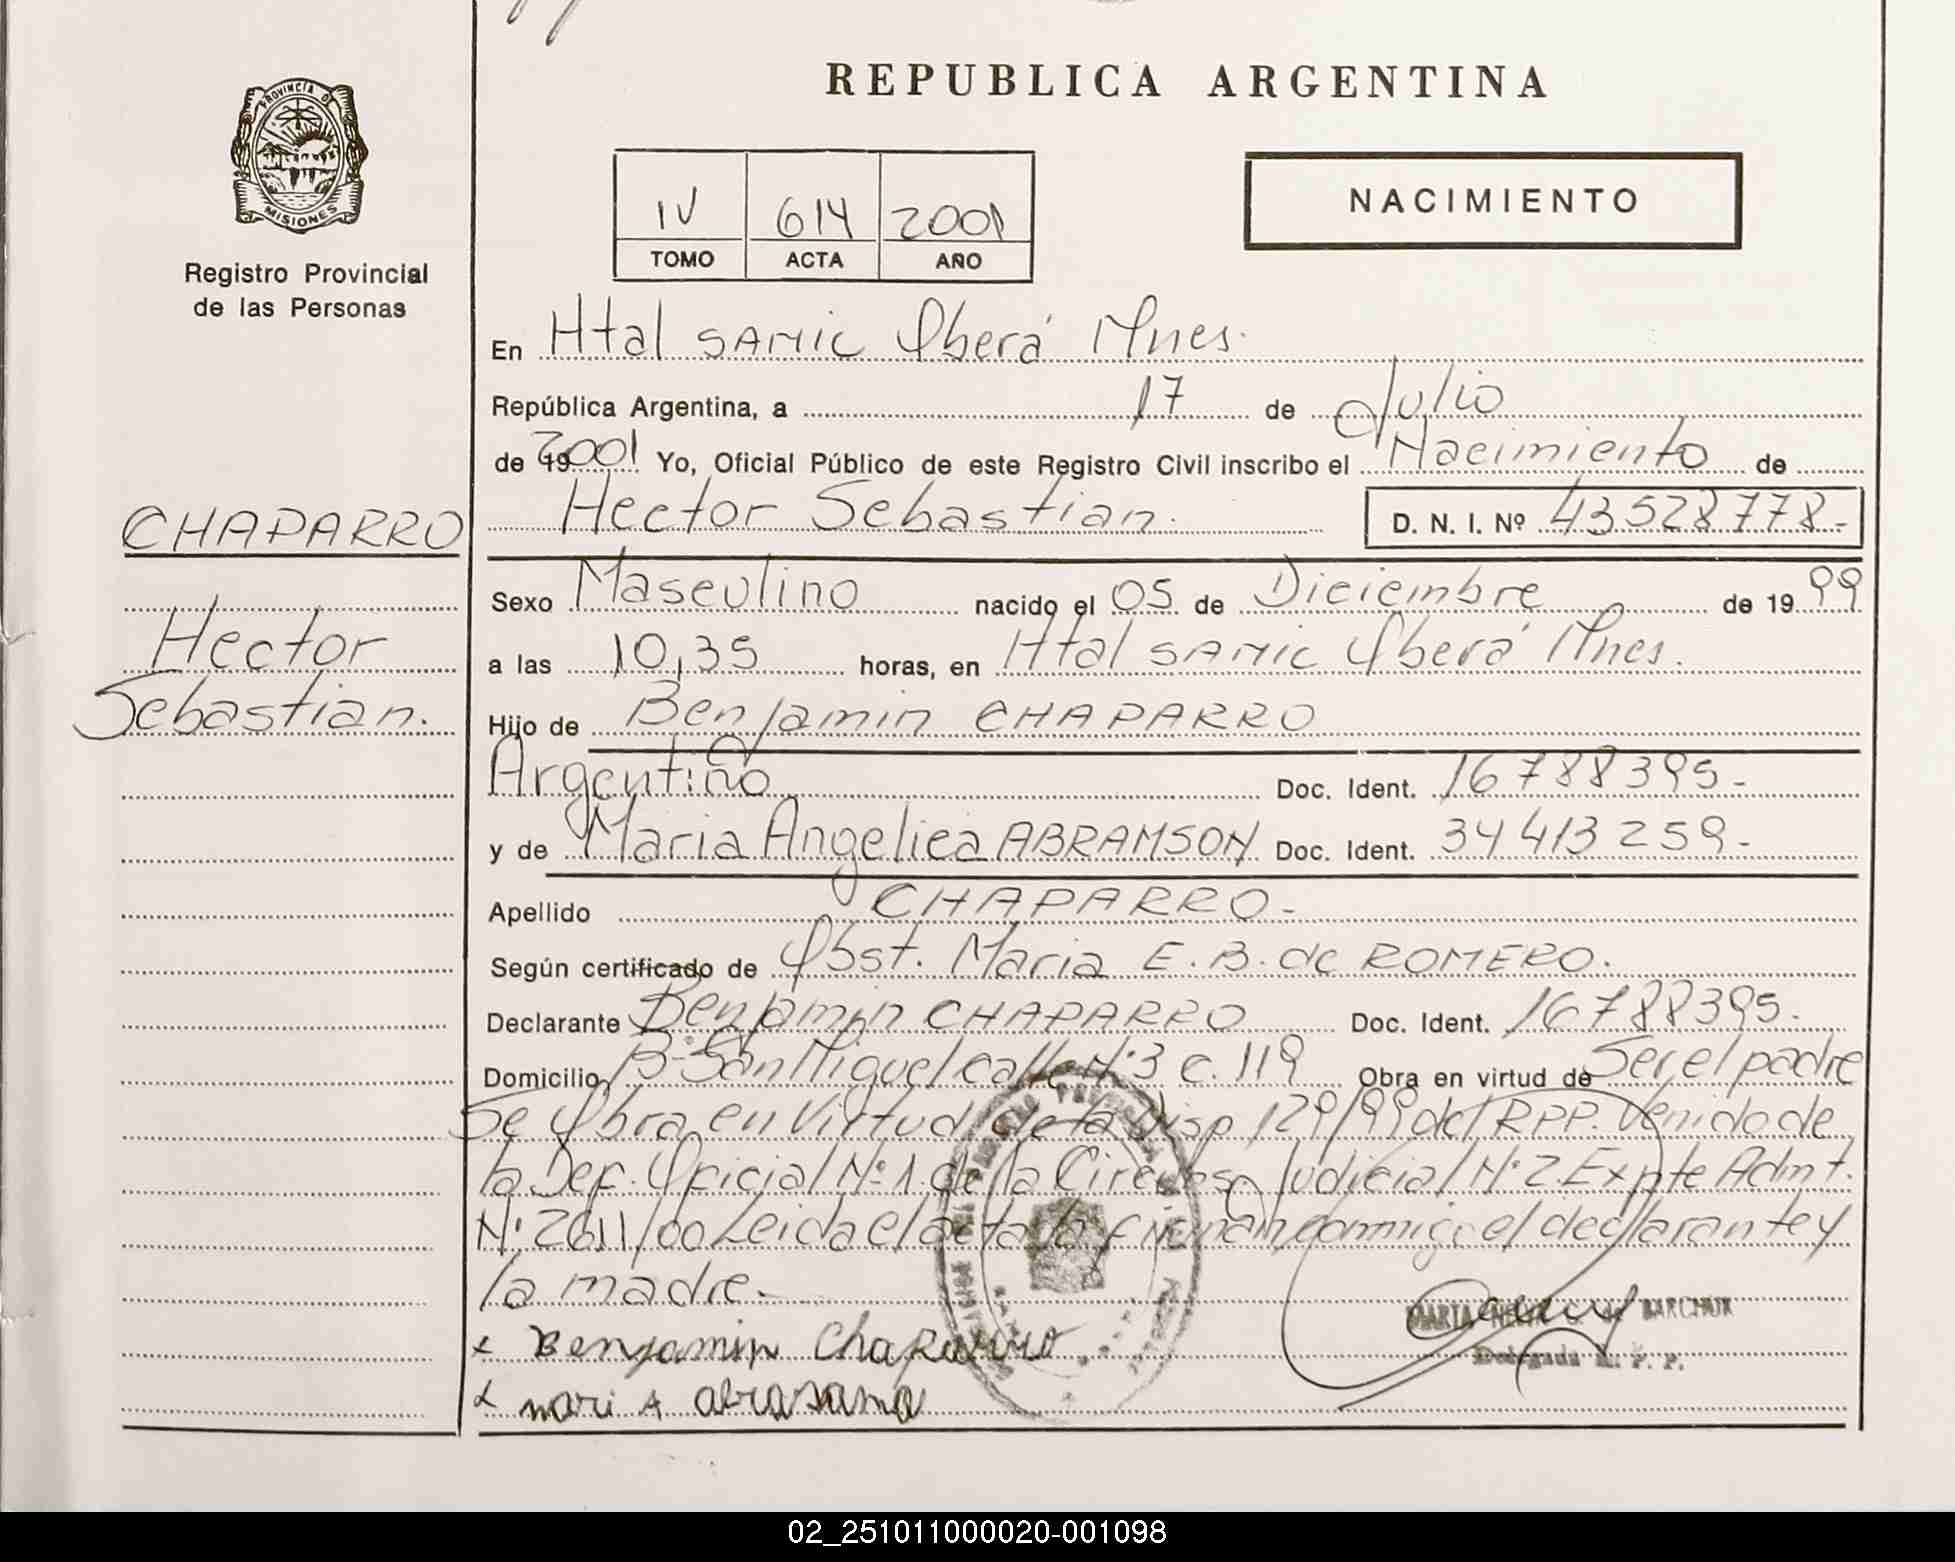 REPUBLICA ARGENTINA
PROVINCIA D
MISIONES
Registro Provincial
de las Personas
IV 614 2001
TOMO ACTA AÑO
NACIMIENTO
En Htal SAMIC Oberá Mnes.
República Argentina, a 17 de Julio
de 19 2001 Yo, Oficial Público de este Registro Civil inscribo el Nacimiento de
Hector Sebastian. D. N. I. Nº 43528778-
CHAPARRO
Hector
Sebastian.
Sexo Masculino nacido el 05 de Diciembre de 1999
a las 10,35 horas, en Htal SAMIC Oberá Mnes.
Hijo de Benjamin CHAPARRO
Argentino Doc. Ident. 16788395-
y de Maria Angelica ABRAMSON Doc. Ident. 34413259-
Apellido CHAPARRO-
Según certificado de Obst. Maria E. B. de ROMERO.
Declarante Benjamin CHAPARRO Doc. Ident. 16788395.
Domicilio Bº San Miguel calle Nº 3 c. 119 Obra en virtud de Ser el padre
Se Obra en Virtud de la Disp 129/99 del RPP. Venido de
la Def. Oficial Nº 1 de la Judicial Nº 2. Expte Admt.
Nº 2611/00 Leida el acta la conmigo el declarante y
la madre.
x Benjamin Chaparro
x mari A
MARTA BARCHUK
Delegada R. P. P.
02_251011000020-001098